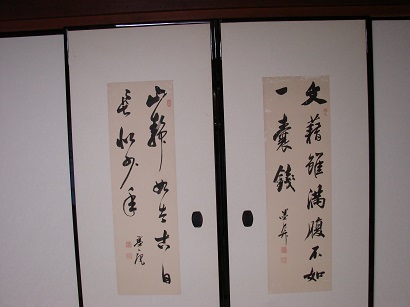 文籍雖満腹不如
一囊錢
山静如太古日
長似小年